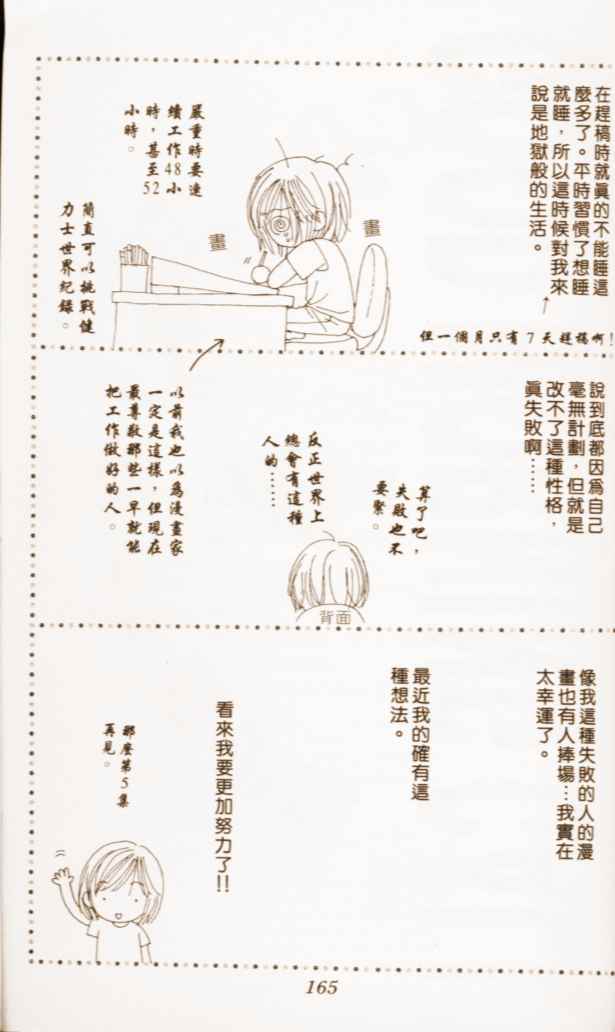 在趕稿時就真的不能睡這
麼多了。平時習慣了想睡
就睡，所以這時候對我來
說是地獄般的生活。
↑
但一個月只有7天趕稿啊！
畫
畫
嚴重時要連
續工作48小
時，甚至52
小時。
簡直可以挑戰健
力士世界紀錄。
說到底都因為自己
毫無計劃，但就是
改不了這種性格，
真失敗啊……
算了吧，
失敗也不
要緊。
反正世界上
總會有這種
人的……
背面
以前我也以為漫畫家
一定是這樣，但現在
最尊敬那些一早就能
把工作做好的人。
像我這種失敗的人的漫
畫也有人捧場…我實在
太幸運了。
最近我的確有這
種想法。
看來我要更加努力了!!
那麼第5集
再見。
165